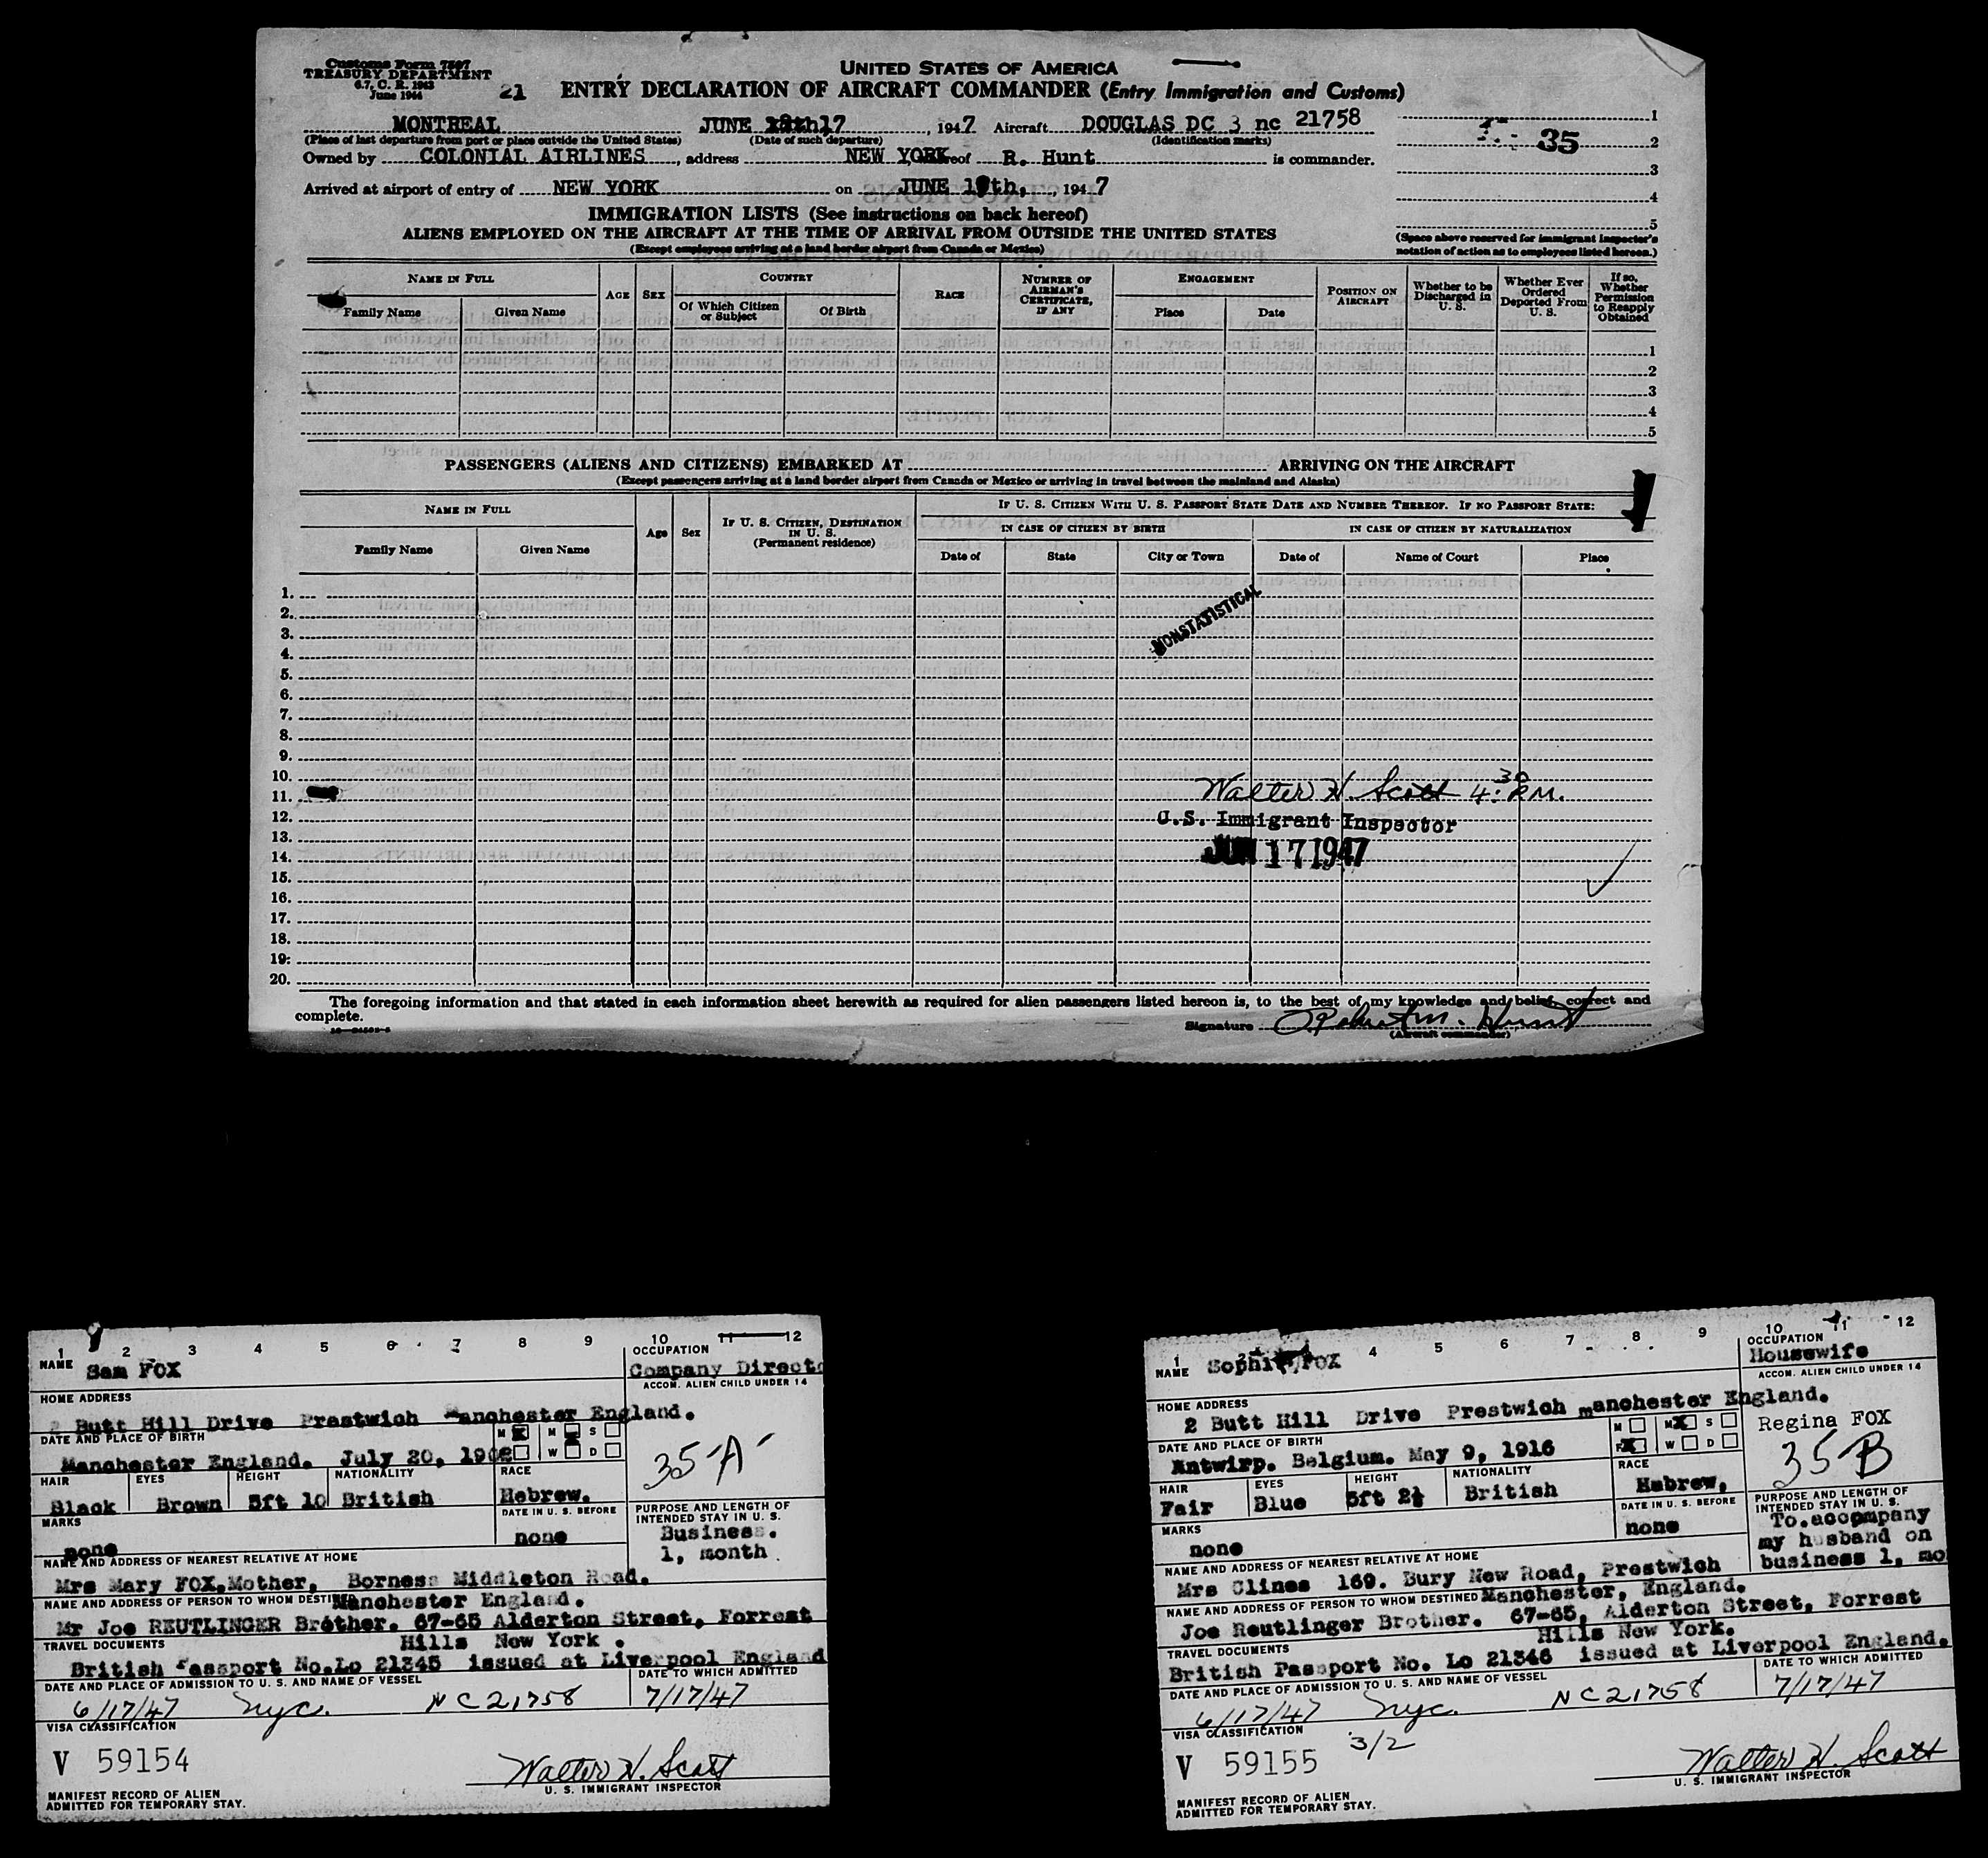 Customs Form 7507
TREASURY DEPARTMENT
6.7, C. R. 1943
June 1944
21
UNITED STATES OF AMERICA
ENTRY DECLARATION OF AIRCRAFT COMMANDER (Entry Immigration and Customs)
MONTREAL JUNE 17, 1947 Aircraft DOUGLAS DC 3 nc 21758
(Place of last departure from port or place outside the United States) (Date of such departure) (Identification marks)
Owned by COLONIAL AIRLINES, address NEW YORK R. Hunt is commander.
Arrived at airport of entry of NEW YORK on JUNE 1 th, 1947
1
35 2
3
4
5
(Space above reserved for immigrant inspector's
notation of action as to employees listed hereon.)
IMMIGRATION LISTS (See instructions on back hereof)
ALIENS EMPLOYED ON THE AIRCRAFT AT THE TIME OF ARRIVAL FROM OUTSIDE THE UNITED STATES
(Except employees arriving at a land border airport from Canada or Mexico)
NAME IN FULL
Family Name Given Name
AGE SEX
COUNTRY
Of Which Citizen or Subject Of Birth
RACE
NUMBER OF AIRMAN'S CERTIFICATE, IF ANY
ENGAGEMENT
Place Date
POSITION ON AIRCRAFT
Whether to be Discharged in U. S.
Whether Ever Ordered Deported From U. S.
If so, Whether Permission to Reapply Obtained
1
2
3
4
5
PASSENGERS (ALIENS AND CITIZENS) EMBARKED AT ARRIVING ON THE AIRCRAFT
(Except passengers arriving at a land border airport from Canada or Mexico or arriving in travel between the mainland and Alaska)
NAME IN FULL
Family Name Given Name
Age Sex
IF U. S. CITIZEN, DESTINATION IN U. S.
(Permanent residence)
IF U. S. CITIZEN WITH U. S. PASSPORT STATE DATE AND NUMBER THEREOF. IF NO PASSPORT STATE:
IN CASE OF CITIZEN BY BIRTH IN CASE OF CITIZEN BY NATURALIZATION
Date of State City or Town Date of Name of Court Place
1.
2.
3.
4.
5.
6.
7.
8.
9.
10.
11.
12.
13.
14.
15.
16.
17.
18.
19.
20.
NONSTATISTICAL
Walter H. Scott 4:30 P.M.
U.S. Immigrant Inspector
JUN 17 1947
The foregoing information and that stated in each information sheet herewith as required for alien passengers listed hereon is, to the best of my knowledge and belief, correct and
complete.
Signature Robert M. Hunt
(Aircraft commander)
1 2 3 4 5 6 7 8 9 10 11 12
NAME Sam FOX
OCCUPATION
Company Directo
ACCOM. ALIEN CHILD UNDER 14
HOME ADDRESS
2 Butt Hill Drive Prestwich Manchester England.
DATE AND PLACE OF BIRTH
Manchester England. July 20, 190
M M S
W D
35-A-
HAIR EYES HEIGHT NATIONALITY RACE
Black Brown 5ft 10 British Hebrew.
MARKS
none
DATE IN U. S. BEFORE
none
PURPOSE AND LENGTH OF
INTENDED STAY IN U. S.
Business.
1, month
NAME AND ADDRESS OF NEAREST RELATIVE AT HOME
Mrs Mary FOX,Mother, Borness Middleton Road.
NAME AND ADDRESS OF PERSON TO WHOM DESTINED Manchester England.
Mr Joe REUTLINGER Brother. 67-65 Alderton Street, Forrest
TRAVEL DOCUMENTS Hills New York .
British Passport No.Lo 21345 issued at Liverpool England
DATE AND PLACE OF ADMISSION TO U. S. AND NAME OF VESSEL DATE TO WHICH ADMITTED
6/17/47 nyc. NC21758 7/17/47
VISA CLASSIFICATION
V 59154
Walter H. Scott
U. S. IMMIGRANT INSPECTOR
MANIFEST RECORD OF ALIEN
ADMITTED FOR TEMPORARY STAY.
1 4 5 6 7 8 9 10 11 12
NAME Sophi FOX
OCCUPATION
Housewife
ACCOM. ALIEN CHILD UNDER 14
Regina FOX
HOME ADDRESS
2 Butt Hill Drive Prestwich manchester England.
DATE AND PLACE OF BIRTH
Antwirp. Belgium. May 9, 1916
M M S
F W D
35 B
HAIR EYES HEIGHT NATIONALITY RACE
Fair Blue 5ft 2½ British Hebrew,
MARKS
none
DATE IN U. S. BEFORE
none
PURPOSE AND LENGTH OF
INTENDED STAY IN U. S.
To.accompany
my husband on
business 1, mo
NAME AND ADDRESS OF NEAREST RELATIVE AT HOME
Mrs Clines 169. Bury New Road, Prestwich
NAME AND ADDRESS OF PERSON TO WHOM DESTINED Manchester, England.
Joe Reutlinger Brother. 67-65, Alderton Street, Forrest
TRAVEL DOCUMENTS Hills New York.
British Passport No. Lo 21346 issued at Liverpool England.
DATE AND PLACE OF ADMISSION TO U. S. AND NAME OF VESSEL DATE TO WHICH ADMITTED
6/17/47 nyc. NC21758 7/17/47
VISA CLASSIFICATION 3/2
V 59155
Walter H Scott
U. S. IMMIGRANT INSPECTOR
MANIFEST RECORD OF ALIEN
ADMITTED FOR TEMPORARY STAY.